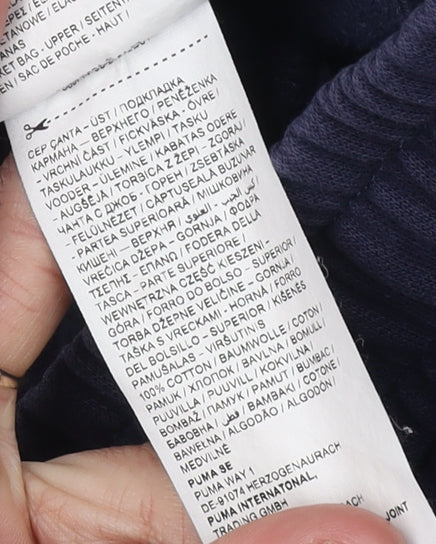 ANAS
KET BAG - UPPER / SEITEN
EN / SAC DE POCHE - HAUT /
CEP ÇANTA - ÜST / ПОДКЛАДКА
КАРМАНА - ВЕРХНЕГО / PENĚŽENKA
- VRCHNÍ ČÁST / FICKVÄSKA - ÖVRE /
TASKULAUKKU - YLEMPI / TASKU
VOODER - ÜLEMINE / KABATAS ODERE
- AUGŠĒJĀ / TORBICA Z ŽEPI - ZGORAJ /
ЧАНТА С ДЖОБ - ГОРЕН / ZSEBTÁSKA
- FELÜLNÉZET / CĂPTUȘEALĂ BUZUNAR
- PARTEA SUPERIOARĂ / МІШКОВИНА
КИШЕНІ - ВЕРХНЯ /
VREĆICA DŽEPA - GORNJA / ΦΟΔΡΑ
ΤΣΕΠΗΣ - ΕΠΑΝΩ / FODERA DELLA
TASCA - PARTE SUPERIORE /
WEWNĘTRZNA CZĘŚĆ KIESZENI -
GÓRA / FORRO DO BOLSO - SUPERIOR /
TORBA DŽEPNE VELIČINE - GORNJA /
TAŠKA S VRECKAMI - HORNÁ / FORRO
DEL BOLSILLO - SUPERIOR / KIŠENĖS
PAMUŠALAS - VIRŠUTINIS
100% COTTON / BAUMWOLLE / COTON /
PAMUK / ХЛОПОК / BAVLNA / BOMULL /
PUUVILLA / PUUVILL / KOKVILNA /
BOMBAŽ / ПАМУК / PAMUT / BUMBAC /
БАВОВНА / قطن / ΒΑΜΒΑΚΙ / COTONE /
BAWEŁNA / ALGODÃO / ALGODÓN /
MEDVILNĖ
PUMA SE
PUMA WAY 1
DE-91074 HERZOGENAURACH
PUMA INTERNATONAL,
TRADING GMBH
RACH
JOINT